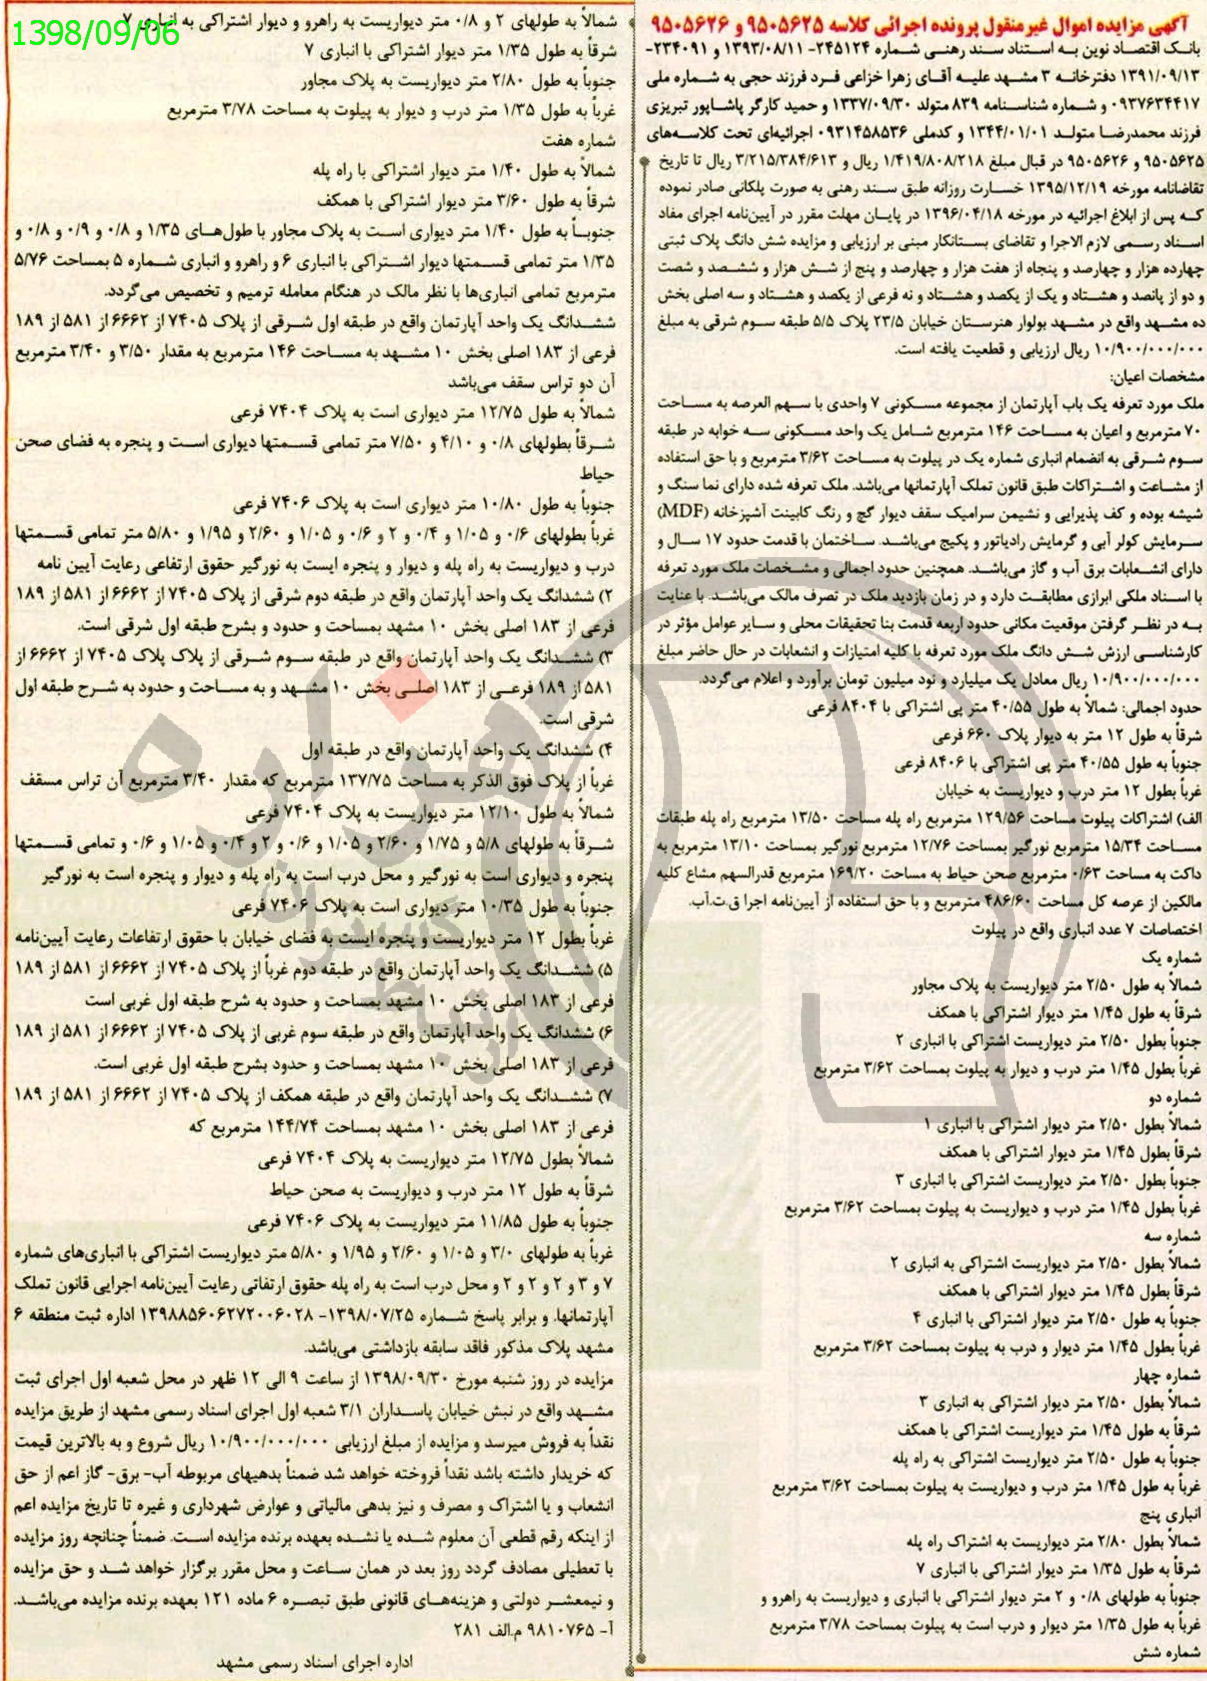 1398/09/06
آگهی مزایده اموال غیرمنقول پرونده اجرائی کلاسه ۹۵۰۵۶۲۵ و ۹۵۰۵۶۲۶
بانک اقتصاد نوین به استناد سند رهنی شماره ۲۴۵۱۲۴- ۱۳۹۳/۰۸/۱۱ و ۲۳۴۰۹۱-
۱۳۹۱/۰۹/۱۳ دفترخانه ۳ مشهد علیه آقای زهرا خزاعی فرد فرزند حجی به شماره ملی
۰۹۳۷۶۳۴۴۱۷ و شماره شناسنامه ۸۳۹ متولد ۱۳۳۷/۰۹/۳۰ و حمید کارگر پاشاپور تبریزی
فرزند محمدرضا متولد ۱۳۴۴/۰۱/۰۱ و کدملی ۰۹۳۱۴۵۸۵۳۶ اجرائیه‌ای تحت کلاسه‌های
۹۵۰۵۶۲۵ و ۹۵۰۵۶۲۶ در قبال مبلغ ۱/۴۱۹/۸۰۸/۲۱۸ ریال و ۳/۲۱۵/۳۸۴/۶۱۳ ریال تا تاریخ
تقاضانامه مورخه ۱۳۹۵/۱۲/۱۹ خسارت روزانه طبق سند رهنی به صورت پلکانی صادر نموده
که پس از ابلاغ اجرائیه در مورخه ۱۳۹۶/۰۴/۱۸ در پایان مهلت مقرر در آیین‌نامه اجرای مفاد
اسناد رسمی لازم الاجرا و تقاضای بستانکار مبنی بر ارزیابی و مزایده شش دانگ پلاک ثبتی
چهارده هزار و چهارصد و پنجاه از هفت هزار و چهارصد و پنج از شش هزار و ششصد و شصت
و دو از پانصد و هشتاد و یک از یکصد و هشتاد و نه فرعی از یکصد و هشتاد و سه اصلی بخش
ده مشهد واقع در مشهد بولوار هنرستان خیابان ۲۳/۵ پلاک ۵/۵ طبقه سوم شرقی به مبلغ
۱۰/۹۰۰/۰۰۰/۰۰۰ ریال ارزیابی و قطعیت یافته است.
مشخصات اعیان:
ملک مورد تعرفه یک باب آپارتمان از مجموعه مسکونی ۷ واحدی با سهم العرصه به مساحت
۷۰ مترمربع و اعیان به مساحت ۱۴۶ مترمربع شامل یک واحد مسکونی سه خوابه در طبقه
سوم شرقی به انضمام انباری شماره یک در پیلوت به مساحت ۳/۶۲ مترمربع و با حق استفاده
از مشاعت و اشتراکات طبق قانون تملک آپارتمانها می‌باشد. ملک تعرفه شده دارای نما سنگ و
شیشه بوده و کف پذیرایی و نشیمن سرامیک سقف دیوار گچ و رنگ کابینت آشپزخانه (MDF)
سرمایش کولر آبی و گرمایش رادیاتور و پکیج می‌باشد. ساختمان با قدمت حدود ۱۷ سال و
دارای انشعابات برق آب و گاز می‌باشد. همچنین حدود اجمالی و مشخصات ملک مورد تعرفه
با اسناد ملکی ابرازی مطابقت دارد و در زمان بازدید ملک در تصرف مالک می‌باشد. با عنایت
به در نظر گرفتن موقعیت مکانی حدود اربعه قدمت بنا تحقیقات محلی و سایر عوامل مؤثر در
کارشناسی ارزش شش دانگ ملک مورد تعرفه با کلیه امتیازات و انشعابات در حال حاضر مبلغ
۱۰/۹۰۰/۰۰۰/۰۰۰ ریال معادل یک میلیارد و نود میلیون تومان برآورد و اعلام می‌گردد.
حدود اجمالی: شمالاً به طول ۴۰/۵۵ متر پی اشتراکی با ۸۴۰۴ فرعی
شرقاً به طول ۱۲ متر به دیوار پلاک ۶۶۰ فرعی
جنوباً به طول ۴۰/۵۵ متر پی اشتراکی با ۸۴۰۶ فرعی
غرباً بطول ۱۲ متر درب و دیواریست به خیابان
الف) اشتراکات پیلوت مساحت ۱۲۹/۵۶ مترمربع راه پله مساحت ۱۳/۵۰ مترمربع راه پله طبقات
مساحت ۱۵/۳۴ مترمربع نورگیر بمساحت ۱۲/۷۶ مترمربع نورگیر بمساحت ۱۳/۱۰ مترمربع به
داکت به مساحت ۰/۶۳ مترمربع صحن حیاط به مساحت ۱۶۹/۲۰ مترمربع قدرالسهم مشاع کلیه
مالکین از عرصه کل مساحت ۴۸۶/۶۰ مترمربع و با حق استفاده از آیین‌نامه اجرا ق.ت.آپ.
اختصاصات ۷ عدد انباری واقع در پیلوت
شماره یک
شمالاً به طول ۲/۵۰ متر دیواریست به پلاک مجاور
شرقاً به طول ۱/۴۵ متر دیوار اشتراکی با همکف
جنوباً بطول ۲/۵۰ متر دیواریست اشتراکی با انباری ۲
غرباً بطول ۱/۴۵ متر درب و دیوار به پیلوت بمساحت ۳/۶۲ مترمربع
شماره دو
شمالاً بطول ۲/۵۰ متر دیوار اشتراکی با انباری ۱
شرقاً بطول ۱/۴۵ متر دیوار اشتراکی با همکف
جنوباً بطول ۲/۵۰ متر دیواریست اشتراکی با انباری ۳
غرباً بطول ۱/۴۵ متر درب و دیواریست به پیلوت بمساحت ۳/۶۲ مترمربع
شماره سه
شمالاً بطول ۲/۵۰ متر دیواریست اشتراکی به انباری ۲
شرقاً بطول ۱/۴۵ متر دیوار اشتراکی با همکف
جنوباً به طول ۲/۵۰ متر دیوار اشتراکی با انباری ۴
غرباً بطول ۱/۴۵ متر دیوار و درب به پیلوت بمساحت ۳/۶۲ مترمربع
شماره چهار
شمالاً بطول ۲/۵۰ متر دیوار اشتراکی به انباری ۳
شرقاً به طول ۱/۴۵ متر دیواریست اشتراکی با همکف
جنوباً به طول ۲/۵۰ متر دیواریست اشتراکی به راه پله
غرباً به طول ۱/۴۵ متر درب و دیواریست به پیلوت بمساحت ۳/۶۲ مترمربع
انباری پنج
شمالاً بطول ۲/۸۰ متر دیواریست به اشتراک راه پله
شرقاً به طول ۱/۳۵ متر دیوار اشتراکی با انباری ۷
جنوباً به طولهای ۰/۸ و ۲ متر دیوار اشتراکی با انباری و دیواریست به راهرو و
غرباً به طول ۱/۳۵ متر دیوار و درب است به پیلوت بمساحت ۳/۷۸ مترمربع
شماره شش
شمالاً به طولهای ۲ و ۰/۸ متر دیواریست به راهرو و دیوار اشتراکی به انباری ۷
شرقاً به طول ۱/۳۵ متر دیوار اشتراکی با انباری ۷
جنوباً به طول ۲/۸۰ متر دیواریست به پلاک مجاور
غرباً به طول ۱/۳۵ متر درب و دیوار به پیلوت به مساحت ۳/۷۸ مترمربع
شماره هفت
شمالاً به طول ۱/۴۰ متر دیوار اشتراکی با راه پله
شرقاً به طول ۳/۶۰ متر دیوار اشتراکی با همکف
جنوباً به طول ۱/۴۰ متر دیواری است به پلاک مجاور با طول‌های ۱/۳۵ و ۰/۸ و ۰/۹ و ۰/۸ و
۱/۳۵ متر تمامی قسمتها دیوار اشتراکی با انباری ۶ و راهرو و انباری شماره ۵ بمساحت ۵/۷۶
مترمربع تمامی انباری‌ها با نظر مالک در هنگام معامله ترمیم و تخصیص می‌گردد.
ششدانگ یک واحد آپارتمان واقع در طبقه اول شرقی از پلاک ۷۴۰۵ از ۶۶۶۲ از ۵۸۱ از ۱۸۹
فرعی از ۱۸۳ اصلی بخش ۱۰ مشهد به مساحت ۱۴۶ مترمربع به مقدار ۳/۵۰ و ۳/۴۰ مترمربع
آن دو تراس سقف می‌باشد
شمالاً به طول ۱۲/۷۵ متر دیواری است به پلاک ۷۴۰۴ فرعی
شرقاً بطولهای ۰/۸ و ۴/۱۰ و ۷/۵۰ متر تمامی قسمتها دیواری است و پنجره به فضای صحن
حیاط
جنوباً به طول ۱۰/۸۰ متر دیواری است به پلاک ۷۴۰۶ فرعی
غرباً بطولهای ۰/۶ و ۱/۰۵ و ۰/۴ و ۲ و ۰/۶ و ۱/۰۵ و ۲/۶۰ و ۱/۹۵ و ۵/۸۰ متر تمامی قسمتها
درب و دیواریست به راه پله و دیوار و پنجره ایست به نورگیر حقوق ارتفاعی رعایت آیین نامه
۲) ششدانگ یک واحد آپارتمان واقع در طبقه دوم شرقی از پلاک ۷۴۰۵ از ۶۶۶۲ از ۵۸۱ از ۱۸۹
فرعی از ۱۸۳ اصلی بخش ۱۰ مشهد بمساحت و حدود و بشرح طبقه اول شرقی است.
۳) ششدانگ یک واحد آپارتمان واقع در طبقه سوم شرقی از پلاک پلاک ۷۴۰۵ از ۶۶۶۲ از
۵۸۱ از ۱۸۹ فرعی از ۱۸۳ اصلی بخش ۱۰ مشهد و به مساحت و حدود به شرح طبقه اول
شرقی است.
۴) ششدانگ یک واحد آپارتمان واقع در طبقه اول
غرباً از پلاک فوق الذکر به مساحت ۱۳۷/۷۵ مترمربع که مقدار ۳/۴۰ مترمربع آن تراس مسقف
شمالاً به طول ۱۲/۱۰ متر دیواریست به پلاک ۷۴۰۴ فرعی
شرقاً به طولهای ۵/۸ و ۱/۷۵ و ۲/۶۰ و ۱/۰۵ و ۰/۶ و ۲ و ۰/۴ و ۱/۰۵ و ۰/۶ و تمامی قسمتها
پنجره و دیواری است به نورگیر و محل درب است به راه پله و دیوار و پنجره است به نورگیر
جنوباً به طول ۱۰/۳۵ متر دیواری است به پلاک ۷۴۰۶ فرعی
غرباً بطول ۱۲ متر دیواریست و پنجره ایست به فضای خیابان با حقوق ارتفاعات رعایت آیین‌نامه
۵) ششدانگ یک واحد آپارتمان واقع در طبقه دوم غرباً از پلاک ۷۴۰۵ از ۶۶۶۲ از ۵۸۱ از ۱۸۹
فرعی از ۱۸۳ اصلی بخش ۱۰ مشهد بمساحت و حدود به شرح طبقه اول غربی است
۶) ششدانگ یک واحد آپارتمان واقع در طبقه سوم غربی از پلاک ۷۴۰۵ از ۶۶۶۲ از ۵۸۱ از ۱۸۹
فرعی از ۱۸۳ اصلی بخش ۱۰ مشهد بمساحت و حدود بشرح طبقه اول غربی است.
۷) ششدانگ یک واحد آپارتمان واقع در طبقه همکف از پلاک ۷۴۰۵ از ۶۶۶۲ از ۵۸۱ از ۱۸۹
فرعی از ۱۸۳ اصلی بخش ۱۰ مشهد بمساحت ۱۴۴/۷۴ مترمربع که
شمالاً بطول ۱۲/۷۵ متر دیواریست به پلاک ۷۴۰۴ فرعی
شرقاً به طول ۱۲ متر درب و دیواریست به صحن حیاط
جنوباً به طول ۱۱/۸۵ متر دیواریست به پلاک ۷۴۰۶ فرعی
غرباً به طولهای ۳/۰ و ۱/۰۵ و ۲/۶۰ و ۱/۹۵ و ۵/۸۰ متر دیواریست اشتراکی با انباری‌های شماره
۷ و ۳ و ۲ و ۲ و محل درب است به راه پله حقوق ارتفاتی رعایت آیین‌نامه اجرایی قانون تملک
آپارتمانها. و برابر پاسخ شماره ۱۳۹۸/۰۷/۲۵- ۱۳۹۸۸۵۶۰۶۲۷۲۰۰۶۰۲۸ اداره ثبت منطقه ۶
مشهد پلاک مذکور فاقد سابقه بازداشتی می‌باشد.
مزایده در روز شنبه مورخ ۱۳۹۸/۰۹/۳۰ از ساعت ۹ الی ۱۲ ظهر در محل شعبه اول اجرای ثبت
مشهد واقع در نبش خیابان پاسداران ۳/۱ شعبه اول اجرای اسناد رسمی مشهد از طریق مزایده
نقداً به فروش میرسد و مزایده از مبلغ ارزیابی ۱۰/۹۰۰/۰۰۰/۰۰۰ ریال شروع و به بالاترین قیمت
که خریدار داشته باشد نقداً فروخته خواهد شد ضمناً بدهیهای مربوطه آب- برق- گاز اعم از حق
انشعاب و یا اشتراک و مصرف و نیز بدهی مالیاتی و عوارض شهرداری و غیره تا تاریخ مزایده اعم
از اینکه رقم قطعی آن معلوم شده یا نشده بعهده برنده مزایده است. ضمناً چنانچه روز مزایده
با تعطیلی مصادف گردد روز بعد در همان ساعت و محل مقرر برگزار خواهد شد و حق مزایده
و نیمعشر دولتی و هزینه‌های قانونی طبق تبصره ۶ ماده ۱۲۱ بعهده برنده مزایده می‌باشد.
آ- ۹۸۱۰۷۶۵ م.الف ۲۸۱
اداره اجرای اسناد رسمی مشهد